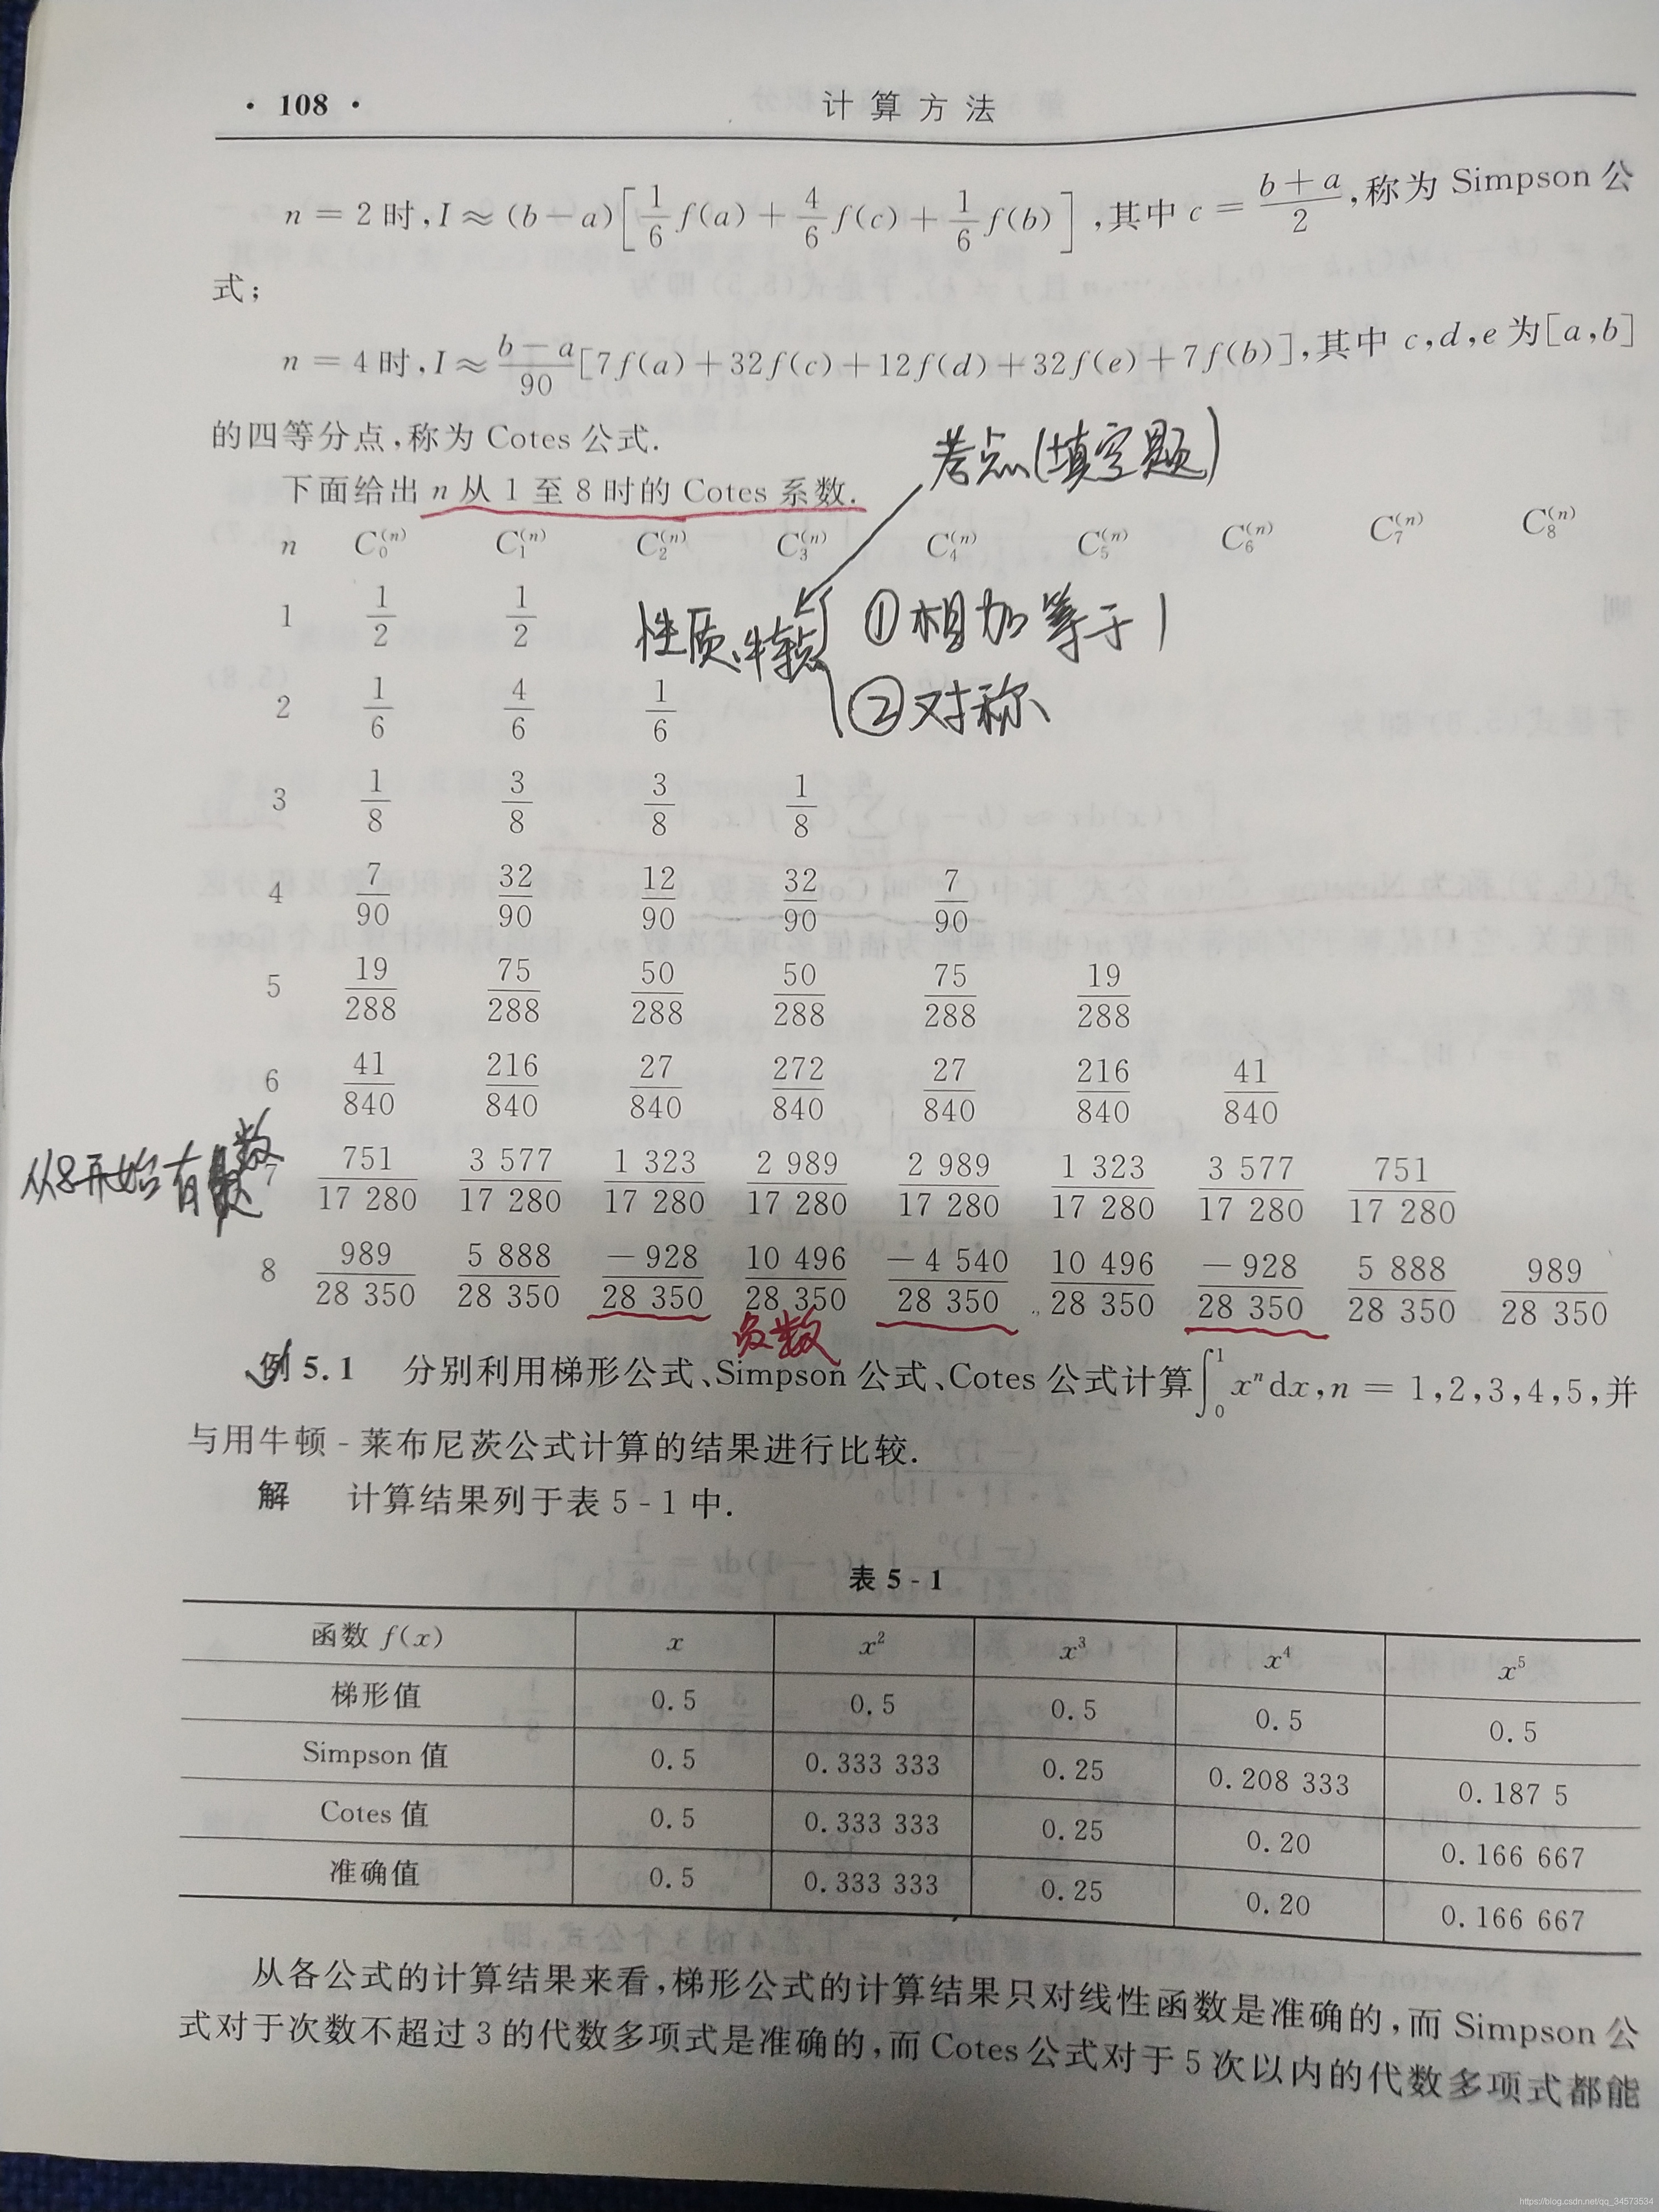 · 108 · 计算方法
n = 2 时, I ≈ (b − a)[1/6 f(a) + 4/6 f(c) + 1/6 f(b)], 其中 c = (b + a)/2, 称为 Simpson 公
式;
n = 4 时, I ≈ (b − a)/90 [7f(a) + 32f(c) + 12f(d) + 32f(e) + 7f(b)], 其中 c,d,e 为[a,b]
的四等分点,称为 Cotes 公式.
考点(填空题)
下面给出 n 从 1 至 8 时的 Cotes 系数.
n C₀⁽ⁿ⁾ C₁⁽ⁿ⁾ C₂⁽ⁿ⁾ C₃⁽ⁿ⁾ C₄⁽ⁿ⁾ C₅⁽ⁿ⁾ C₆⁽ⁿ⁾ C₇⁽ⁿ⁾ C₈⁽ⁿ⁾
1 1/2 1/2
性质、特点 ①相加等于1
②对称
2 1/6 4/6 1/6
3 1/8 3/8 3/8 1/8
4 7/90 32/90 12/90 32/90 7/90
5 19/288 75/288 50/288 50/288 75/288 19/288
6 41/840 216/840 27/840 272/840 27/840 216/840 41/840
从8开始有 数
7 751/17 280 3 577/17 280 1 323/17 280 2 989/17 280 2 989/17 280 1 323/17 280 3 577/17 280 751/17 280
8 989/28 350 5 888/28 350 −928/28 350 10 496/28 350 −4 540/28 350 10 496/28 350 −928/28 350 5 888/28 350 989/28 350
负数
例 5.1 分别利用梯形公式、Simpson 公式、Cotes 公式计算∫₀¹ xⁿdx, n = 1,2,3,4,5,并
与用牛顿 - 莱布尼茨公式计算的结果进行比较.
解 计算结果列于表 5 - 1 中.
表 5 - 1
函数 f(x) x x² x³ x⁴ x⁵
梯形值 0.5 0.5 0.5 0.5 0.5
Simpson 值 0.5 0.333 333 0.25 0.208 333 0.187 5
Cotes 值 0.5 0.333 333 0.25 0.20 0.166 667
准确值 0.5 0.333 333 0.25 0.20 0.166 667
从各公式的计算结果来看,梯形公式的计算结果只对线性函数是准确的,而 Simpson 公
式对于次数不超过 3 的代数多项式是准确的,而 Cotes 公式对于 5 次以内的代数多项式都能
https://blog.csdn.net/qq_34573534